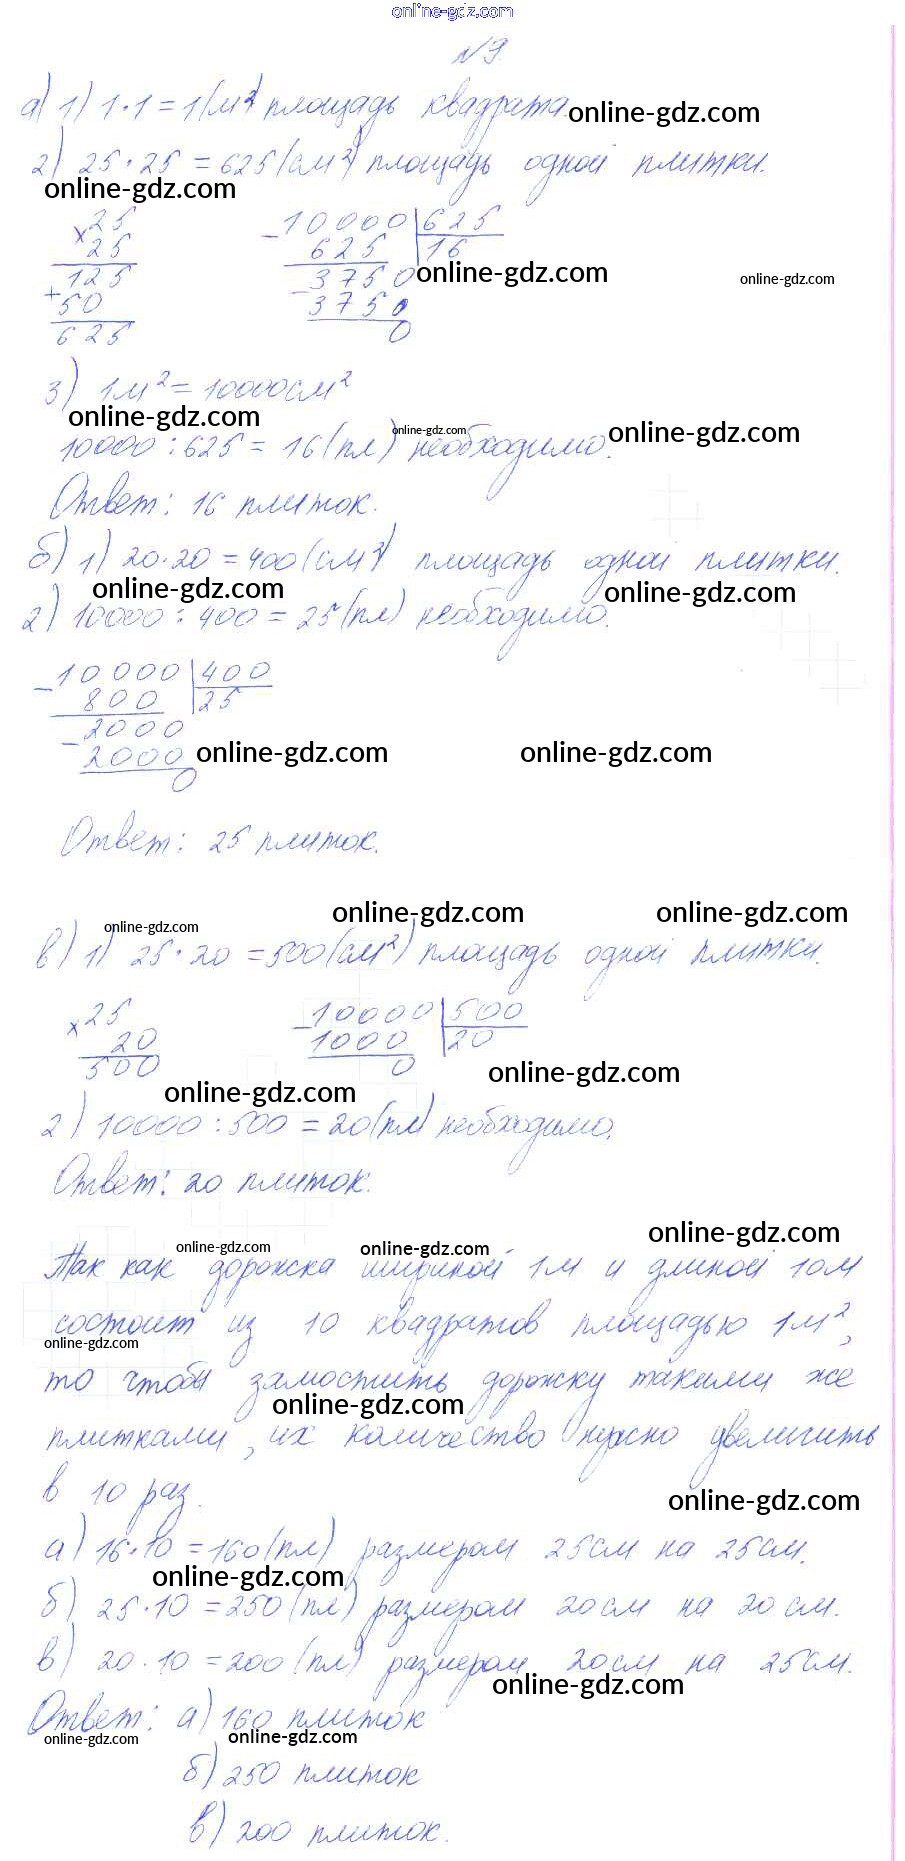 online-gdz.com
№9.
а) 1) 1·1=1(м²) площадь квадрата.
online-gdz.com
2) 25·25=625(см²) площадь одной плитки.
online-gdz.com
×25 −10000|625
25 625 |16
125 −3750 online-gdz.com online-gdz.com
+50 3750
625 0
3) 1м²=10000см²
online-gdz.com online-gdz.com online-gdz.com
10000:625=16(пл) необходимо.
Ответ: 16 плиток.
б) 1) 20·20=400(см²) площадь одной плитки.
online-gdz.com online-gdz.com
2) 10000:400=25(пл) необходимо.
−10000|400
800 |25
−2000
2000 online-gdz.com online-gdz.com
0
Ответ: 25 плиток.
online-gdz.com online-gdz.com online-gdz.com
в) 1) 25·20=500(см²) площадь одной плитки.
×25 −10000|500
20 1000 |20
500 0 online-gdz.com
online-gdz.com
2) 10000:500=20(пл) необходимо.
Ответ: 20 плиток.
online-gdz.com online-gdz.com online-gdz.com
Так как дорожка шириной 1м и длиной 10м
состоит из 10 квадратов площадью 1м²,
online-gdz.com
то чтобы замостить дорожку такими же
online-gdz.com
плитками, их количество нужно увеличить
в 10 раз.
online-gdz.com
а) 16·10=160(пл) размером 25см на 25см.
online-gdz.com
б) 25·10=250(пл) размером 20см на 20см.
в) 20·10=200(пл) размером 20см на 25см.
online-gdz.com
Ответ: а) 160 плиток
online-gdz.com online-gdz.com
б) 250 плиток
в) 200 плиток.